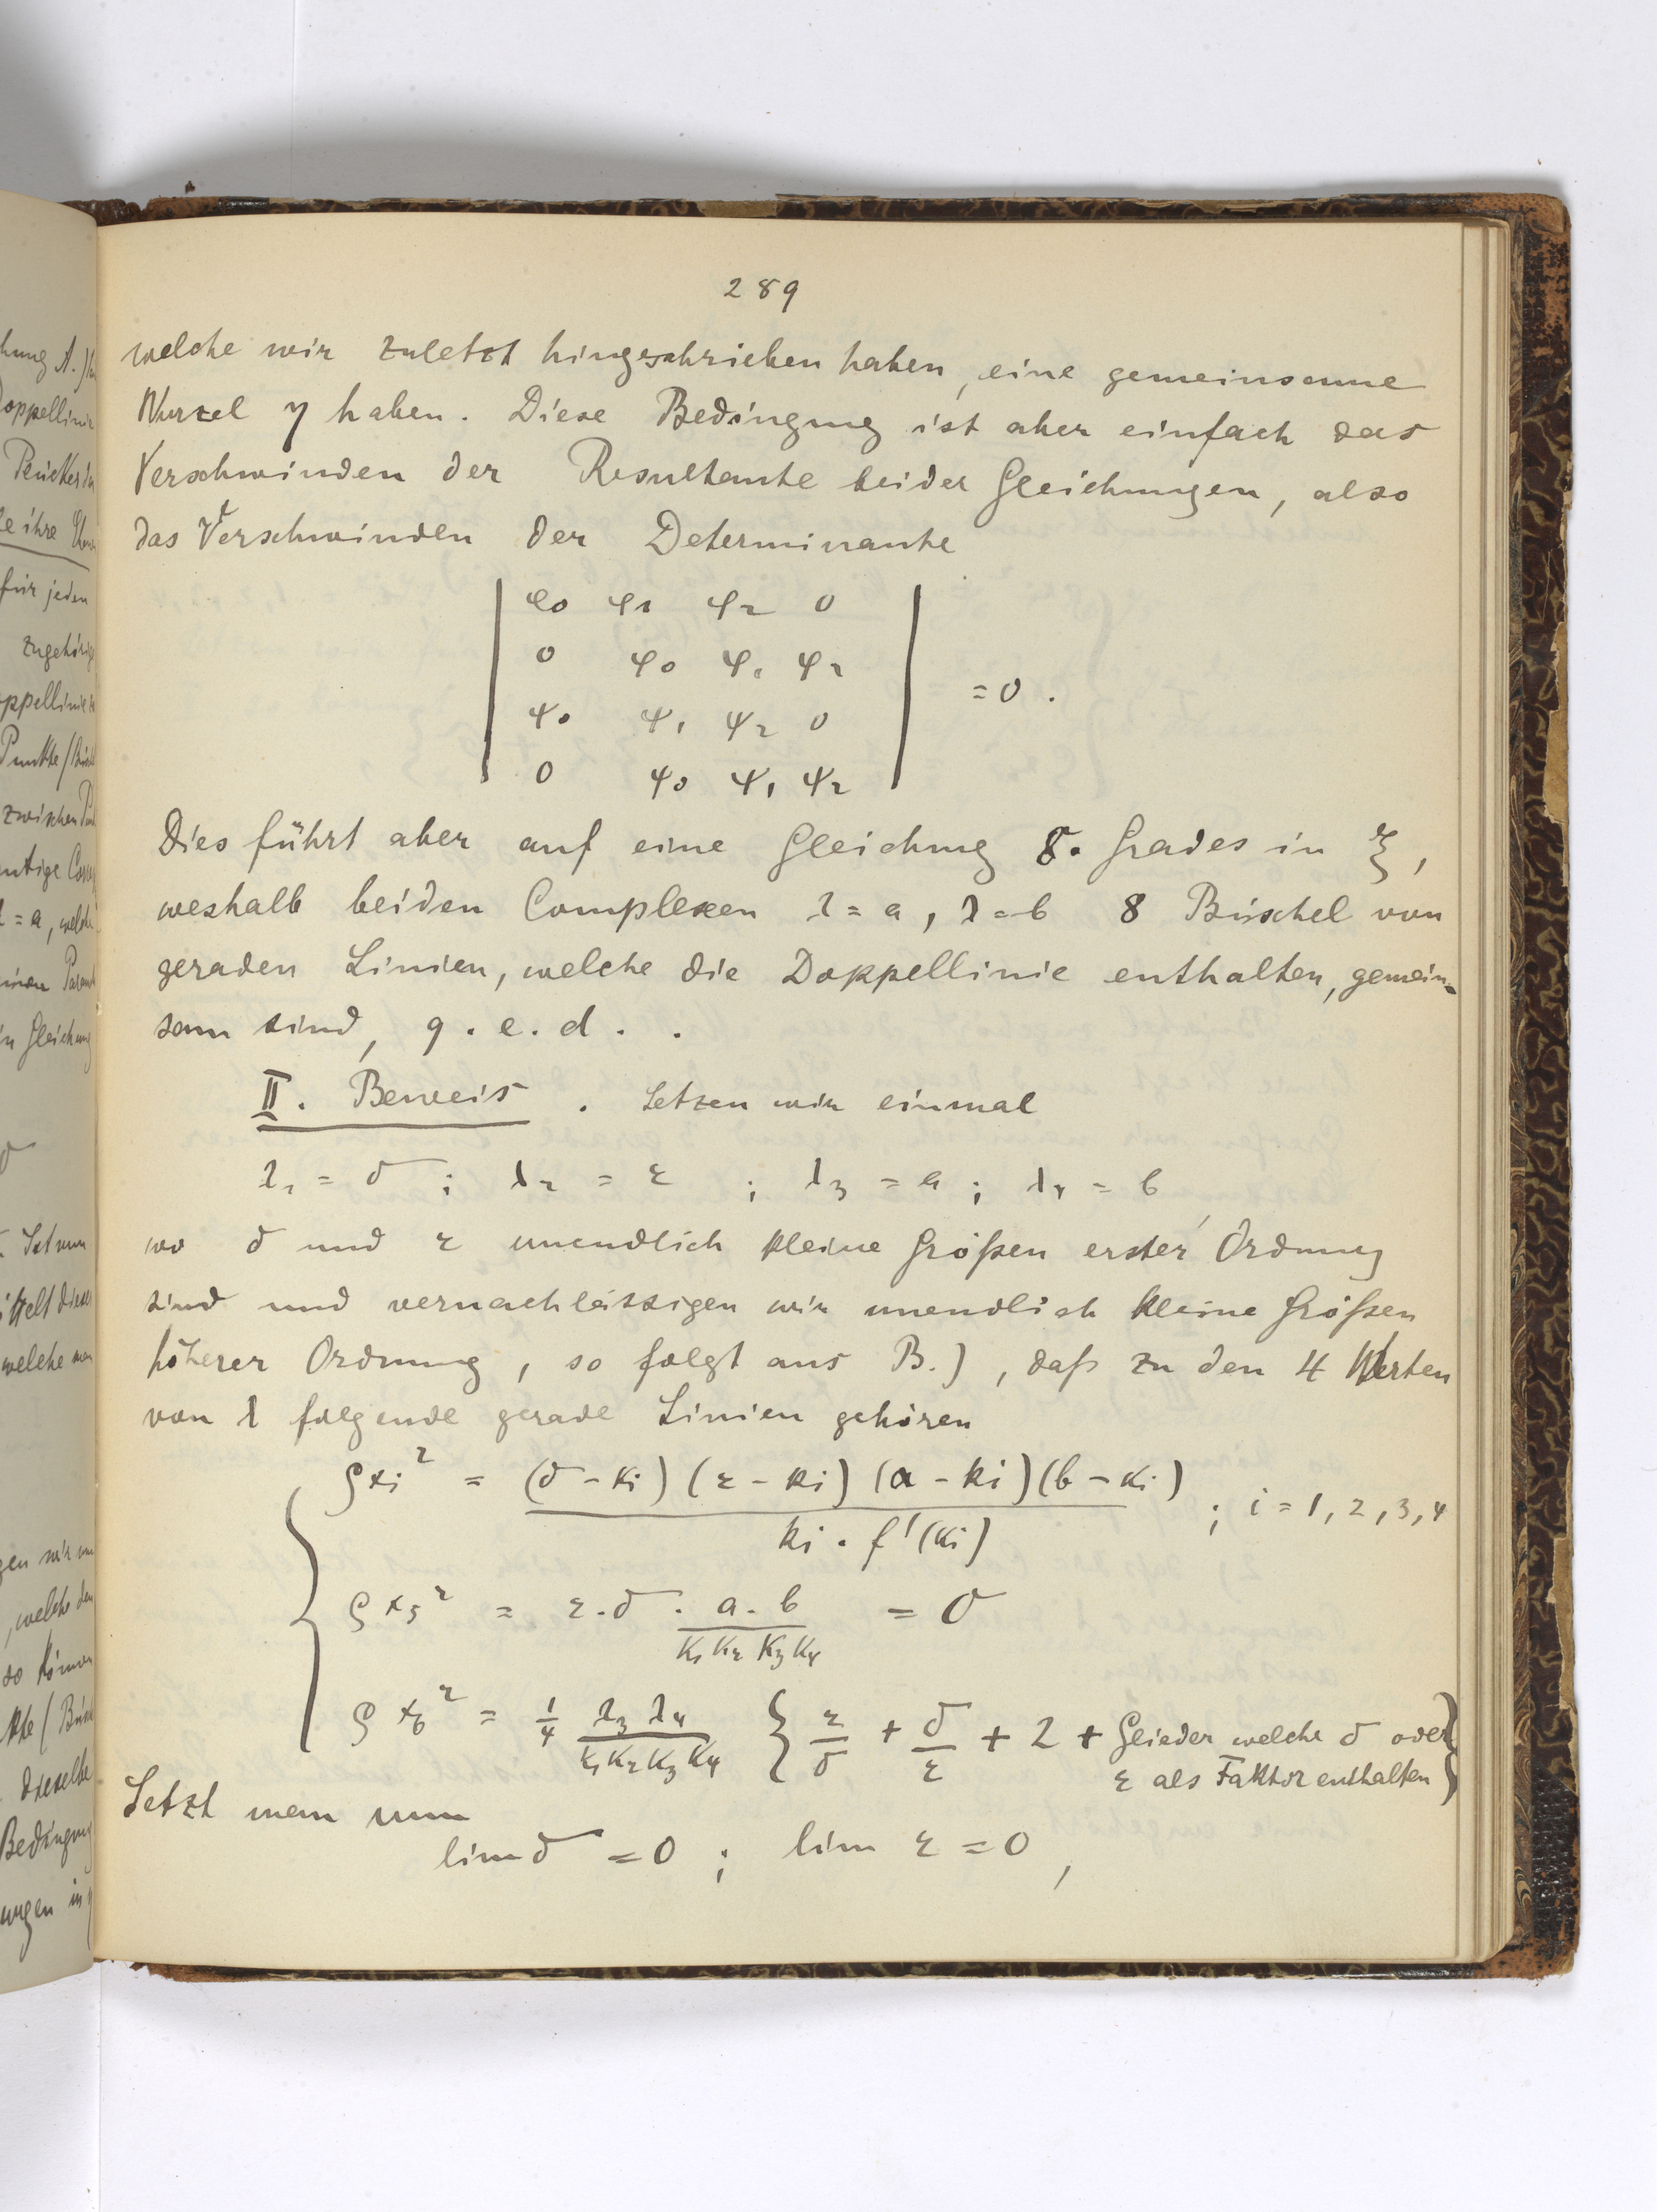 289
welche wir zuletzt hingeschrieben haben, eine gemeinsame
Wurzel η haben. Diese Bedingung ist aber einfach das
Verschwinden der Resultante beider Gleichungen, also
das Verschwinden der Determinante
| φ0 φ1 φ2 0 |
| 0 φ0 φ1 φ2 |
| ψ0 ψ1 ψ2 0 | = 0.
| 0 ψ0 ψ1 ψ2 |
Dies führt aber auf eine Gleichung 8. Grades in ξ,
weshalb beiden Complexen λ = a, λ = b 8 Büschel von
geraden Linien, welche die Doppellinie enthalten, gemein-
sam sind, q. e. d. .
II. Beweis. Setzen wir einmal
λ1 = δ ; λ2 = ε ; λ3 = a ; λ4 = b
wo δ und ε unendlich kleine Größen erster Ordnung
sind und vernachlässigen wir unendlich kleine Größen
höherer Ordnung, so folgt aus B.), daß zu den 4 Werten
von λ folgende gerade Linien gehören
ρxi² = (δ - ki)(ε - ki)(a - ki)(b - ki) / ki . f'(ki) ; i = 1, 2, 3, 4
ρx5² = ε . δ . a . b / K1 K2 K3 K4 = 0
ρx6² = 1/4 λ3 λ4 / K1 K2 K3 K4 { ε/δ + δ/ε + 2 + Glieder welche δ oder
ε als Faktor enthalten }
Setzt man nun
lim δ = 0 ; lim ε = 0,